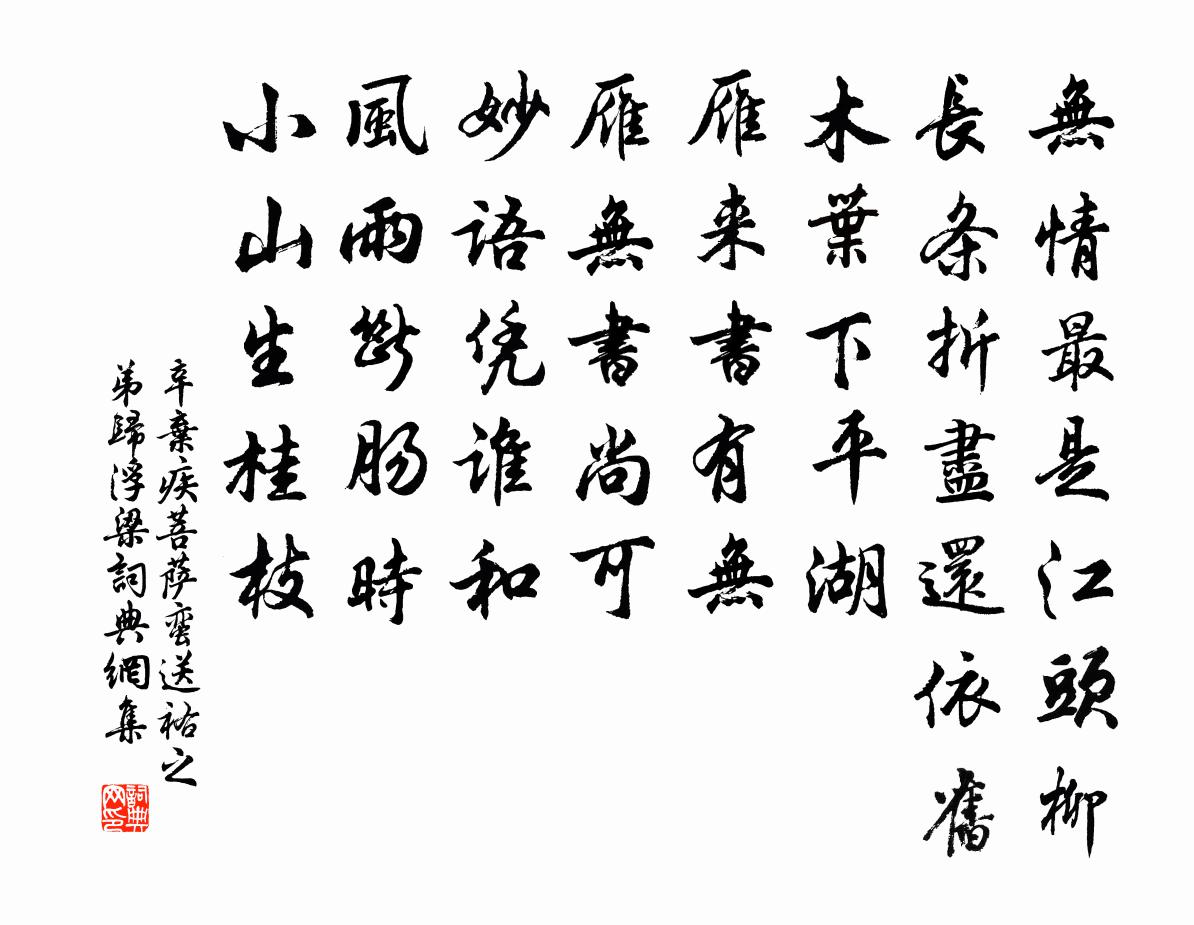 無情最是江頭柳
長条折盡還依舊
木葉下平湖
雁来書有無
雁無書尚可
妙語凭誰和
風雨斷腸時
小山生桂枝
辛棄疾菩薩蛮送祐之
弟歸浮梁詞典網集
詞典网印